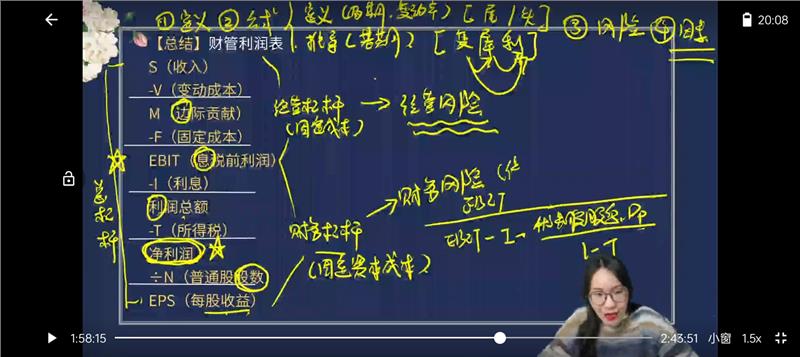 20:08
①定义 ②公式 定义(两期,变动率) [尾/头] ③风险 ④因素
【总结】财管利润表 推导(基期) [
S（收入）
-V（变动成本）
M（边际贡献） 经营杠杆 → 经营风险
(固定成本)
-F（固定成本）
EBIT（息税前利润）
-I（利息） 财务风险
EBIT
利润总额
-T（所得税） 财务杠杆 EBIT-I-
1-T
净利润 (固定资本成本)
÷N（普通股股数）
EPS（每股收益）
总杠杆
1:58:15 2:43:51 小窗 1.5x